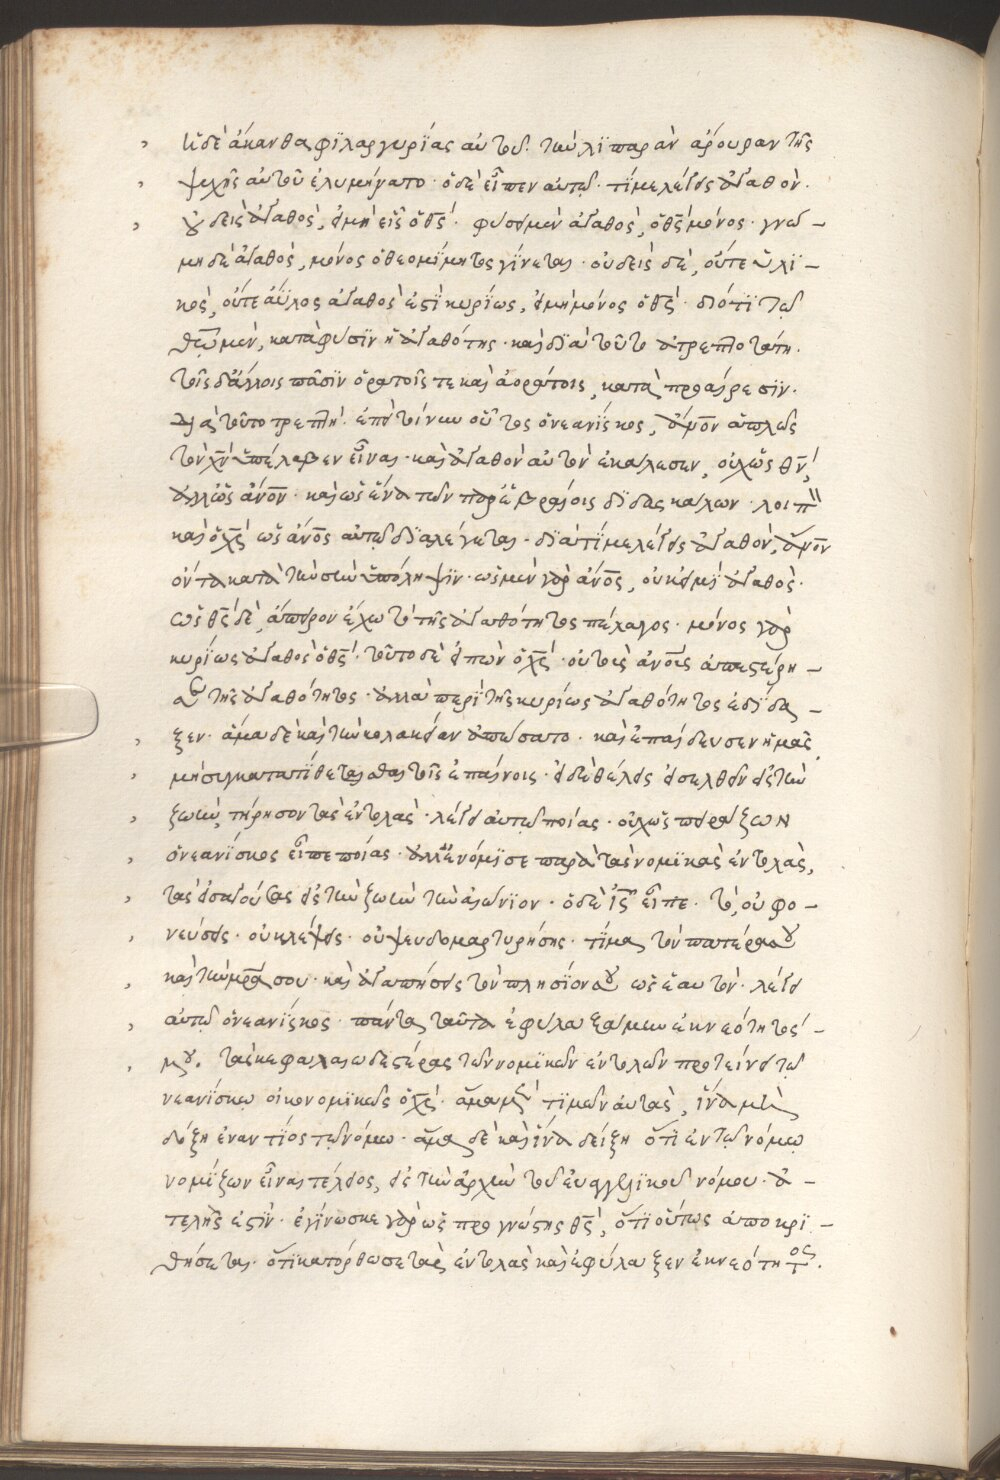 ἡ δὲ ἄκανθα φϊλαργυρΐας αὐτοῦ. τὴν λϊπαρὰν ἄρουραν τῆς
ψυχῆς αὐτοῦ ἐλυμήνατο · ὁ δὲ εἶπεν αὐτῷ · τί με λέγεις ἀγαθόν ·
οὐδεὶς ἀγαθὸς, εἰ μὴ εἷς ὁ θς · φύσει μὲν ἀγαθὸς, ὁ θς μόνος · γνώ –
μη δὲ ἀγαθὸς, μόνος ὁ θεομΐμητος γΐνεται · οὐδεὶς δὲ, οὔτε ὑλϊ –
κὸς, οὔτε ἄϋλος ἀγαθὸς ἐστὶ κυρΐως, εἰ μὴ μόνος ὁ θς · διότϊ τῷ
θεῷ μὲν, κατὰ φύσϊν ἡ ἀγαθότης · καὶ δϊὰ τοῦτο ἀτρεπτοτάτη ·
τοῖς δ' ἄλλοις πᾶσϊν ὁρατοῖς τε καὶ ἀοράτοις, κατὰ προαίρεσϊν ·
διὰ τοῦτο τρεπτή · ἐπεὶ τοίνυν οὗτος ὁ νεανΐσκος, ἄνον ἁπλῶς
τὸν χν ὑπέλαβεν εἶναι · καὶ ἀγαθὸν αὐτὸν ἐκάλεσεν, οὐχ ὡς θν,
ἀλλ' ὡς ἄνον · καὶ ὡς ἕνα τῶν παρ' ἑβραίοις δϊδασκάλων · λοιπὸν
καὶ ὁ χς ὡς ἄνος αὐτῷ δϊαλέγεται · δϊατΐ με λέγεις ἀγαθὸν, ἄνον
ὄντα κατὰ τὴν σὴν ὑπόληψϊν · ὡς μὲν γὰρ ἄνος, οὐκ εἰμϊ ἀγαθὸς ·
ὡς θς δὲ, ἄπειρον ἔχω τὸ τῆς ἀγαθότητος πέλαγος · μόνος γὰρ
κυρΐως ἀγαθὸς ὁ θς · τοῦτο δὲ εἰπὼν ὁ χς · οὐ τοὺς ἀνους ἀπεστέρη –
σε τῆς ἀγαθότητος · ἀλλὰ περὶ τῆς κυρΐως ἀγαθότητος ἐδΐδα –
ξεν · ἅμα δὲ καὶ τὴν κολακείαν ἀπώσατο · καὶ ἐπαίδευσεν ἡμᾶς
μὴ συγκατατΐθεσθαι τοῖς ἐπαίνοις · εἰ δὲ θέλεις εἰσελθεῖν εἰς τὴν
ζωὴν, τήρησον τὰς ἐντολάς · λέγει αὐτῷ ποίας · οὐχ ὡς πειράζων
ὁ νεανΐσκος εἶπε ποίας · ἀλλ' ἐνόμϊσε παρὰ τὰς νομϊκὰς ἐντολὰς,
τὰς εἰσαγούσας εἰς τὴν ζωὴν τὴν αἰώνϊον · ὁ δὲ ις εἶπε · τὸ, οὐ φο –
νεύσεις · οὐ κλέψεις · οὐ ψευδομαρτυρήσης · τΐμα τὸν πατέρα σου
καὶ τὴν μρα σου · καὶ ἀγαπήσεις τὸν πλησΐον σου ὡς ἑαυτόν · λέγει
αὐτῷ ὁ νεανΐσκος · πάντα ταῦτα ἐφυλαξάμην ἐκ νεότητός –
μου. τὰς κεφαλαιωδεστέρας τῶν νομϊκῶν ἐντολῶν προτείνει τῷ
νεανΐσκῳ οἰκονομϊκῶς ὁ χς · ἅμα μὲν τϊμῶν αὐτὰς, ἵνα μὴ
δόξη ἐναντΐος τῷ νόμῳ · ἅμα δὲ καὶ ἵνα δείξη ὅτϊ ἐν τῷ νόμῳ
νομΐζων εἶναι τέλειος, εἰς τὴν ἀρχὴν τοῦ εὐαγγελϊκοῦ νόμου · ἀ –
τελής ἐστϊν · ἐγΐνωσκε γὰρ ὡς προγνώστης θς, ὅτϊ οὕτως ἀποκρϊ –
θήσεται · ὅτϊ κατόρθωσε τὰς ἐντολὰς καὶ ἐφύλαξεν ἐκ νεότητος.